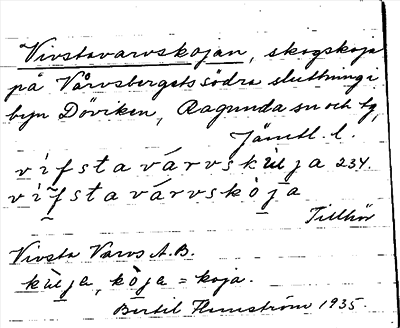 Vivstavarvskojan, skogskoja
på Vårvsbergets södra sluttning i
byn Döviken, Ragunda sn och tg,
Jämtl. l.
vìfstavárvskùlja 234.
vìfstavárvskòja
Tillhör
Vivsta Varvs A.B.
kùlja, kòja = koja.
Bertil Flemström 1935.